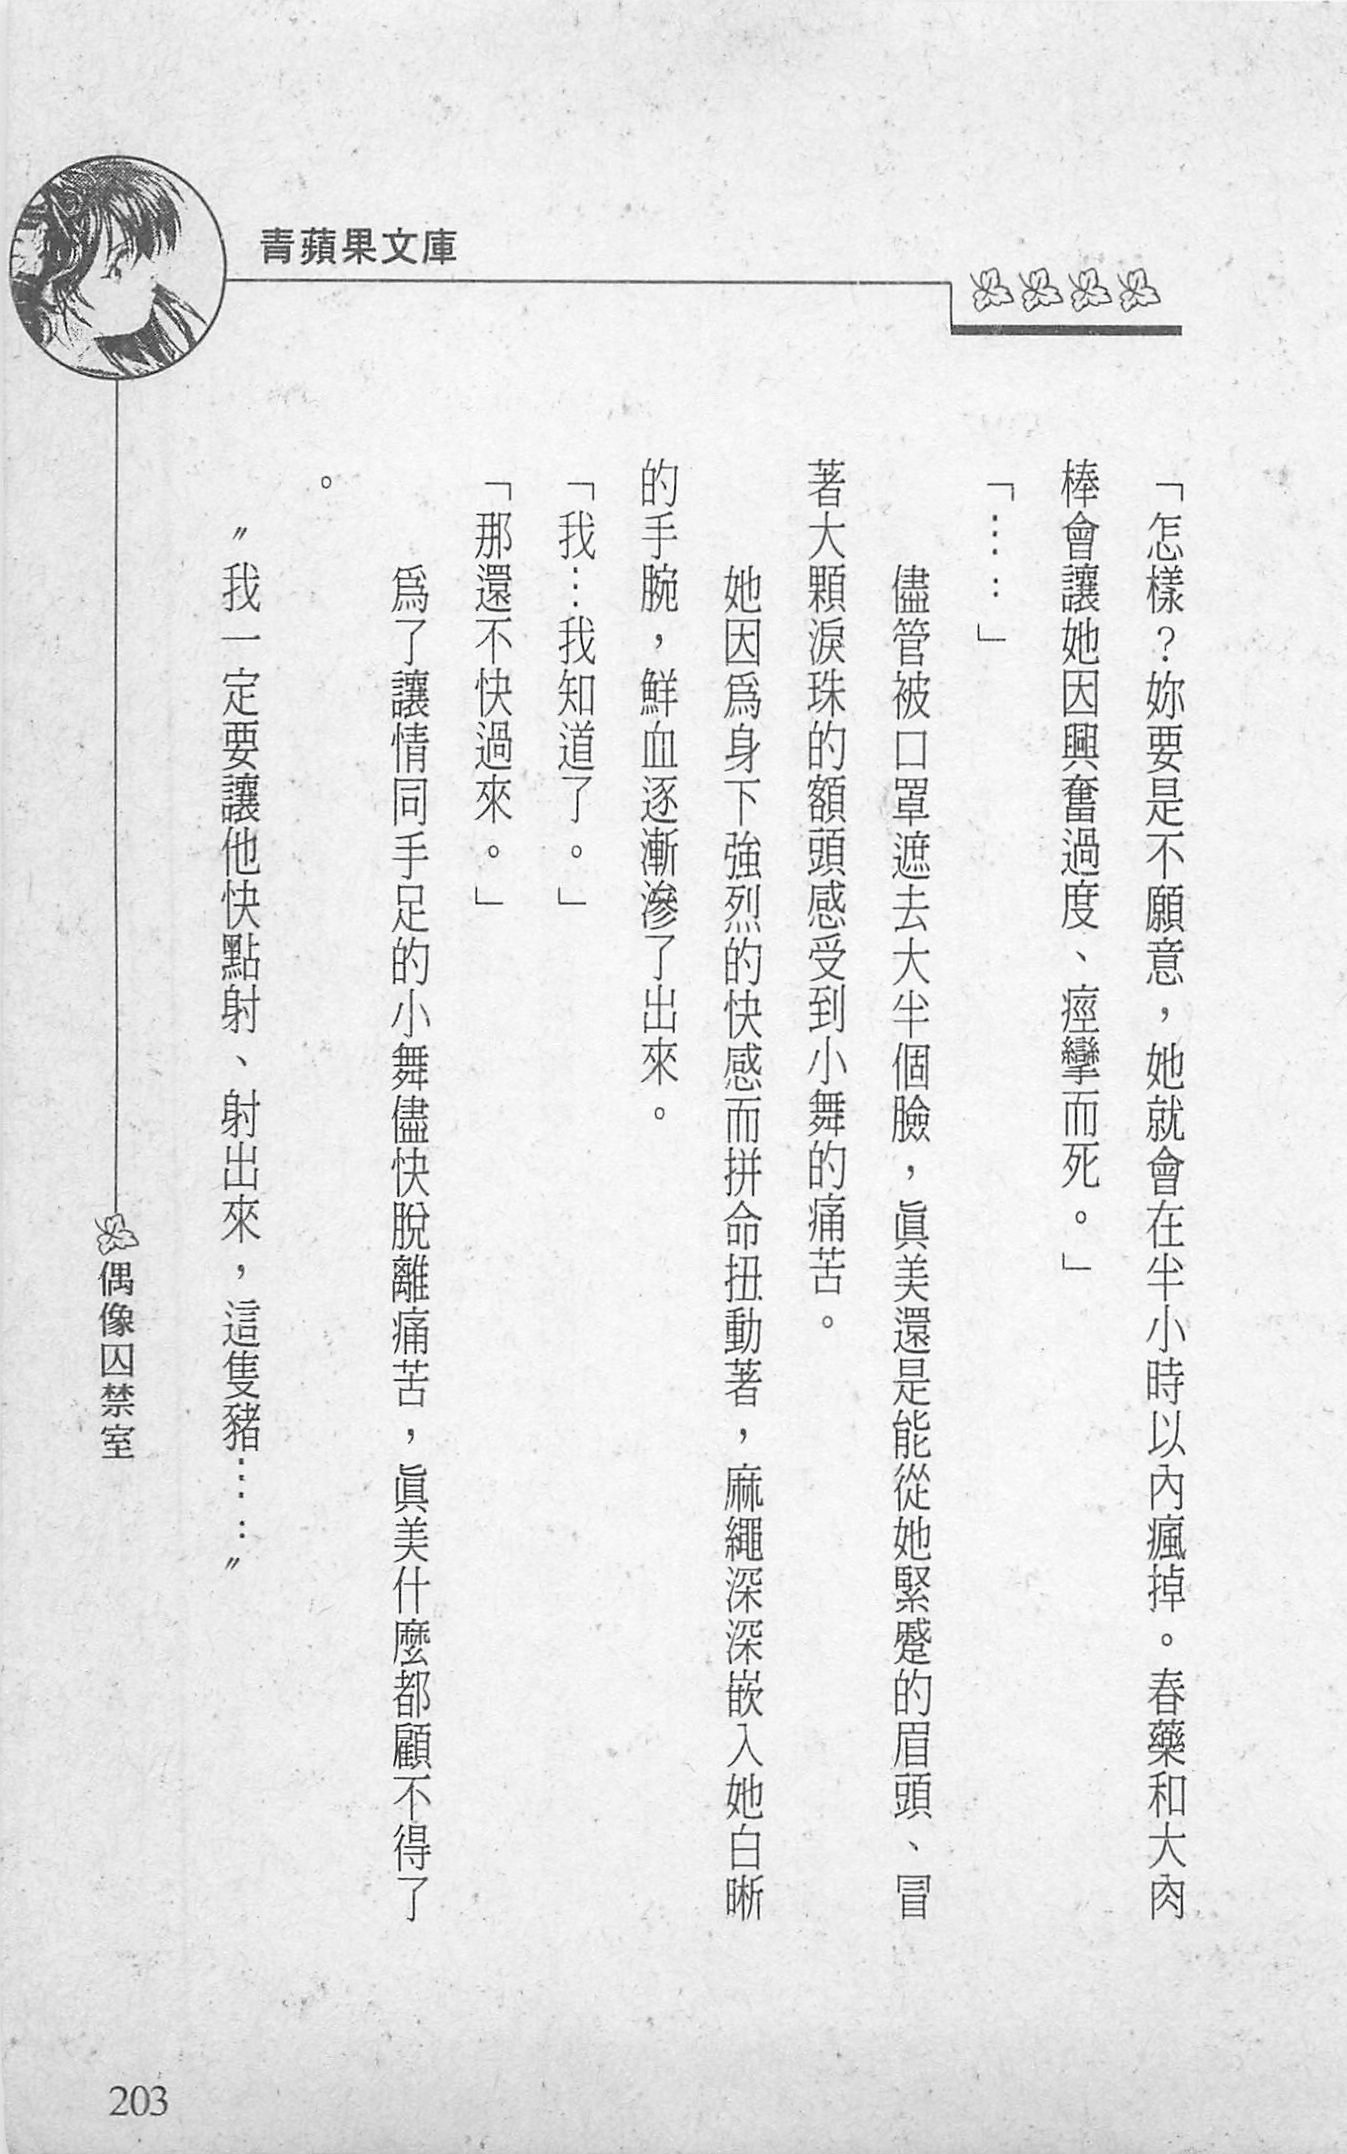 青蘋果文庫
「怎樣？妳要是不願意，她就會在半小時以內瘋掉。春藥和大肉
棒會讓她因興奮過度、痙攣而死。」
「……」
儘管被口罩遮去大半個臉，眞美還是能從她緊蹙的眉頭、冒
著大顆淚珠的額頭感受到小舞的痛苦。
她因爲身下強烈的快感而拼命扭動著，麻繩深深嵌入她白晰
的手腕，鮮血逐漸滲了出來。
「我…我知道了。」
「那還不快過來。」
爲了讓情同手足的小舞儘快脫離痛苦，眞美什麼都顧不得了
。
〞我一定要讓他快點射、射出來，這隻豬……〞
偶像囚禁室
203